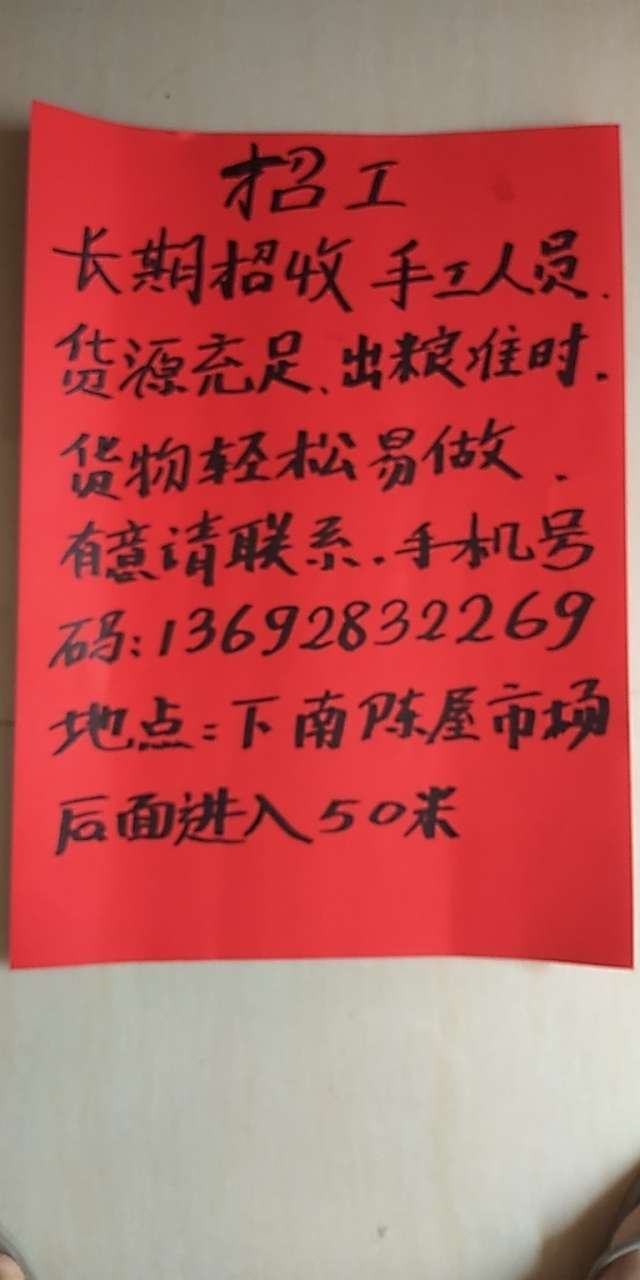 招工
长期招收 手工人员.
货源充足、出粮准时.
货物轻松易做.
有意请联系.手机号
码:13692832269
地点:下南陈屋市场
后面进入50米